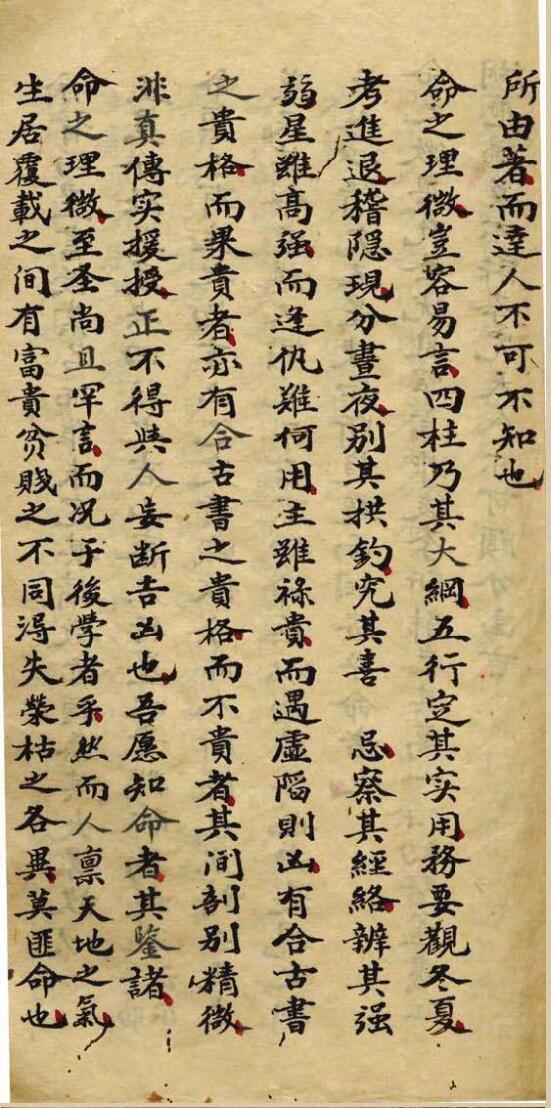 所由著而達人不可不知也
命之理微豈容易言四柱乃其大綱五行定其实用務要觀冬夏
考進退稽隐現分晝夜别其拱釣究其喜　忌察其經絡辨其强
弱星雖高强而逢仇難何用主雖祿貴而遇虚陷則凶有合古書
之貴格而果貴者亦有合古書之貴格而不貴者其间剖别精微
非真傳实援授正不得與人妄断吉凶也吾愿知命者其鉴諸
命之理微至圣尚且罕言而况于後學者乎然而人禀天地之氣
生居覆載之间有富貴贫賤之不同得失榮枯之各異莫匪命也